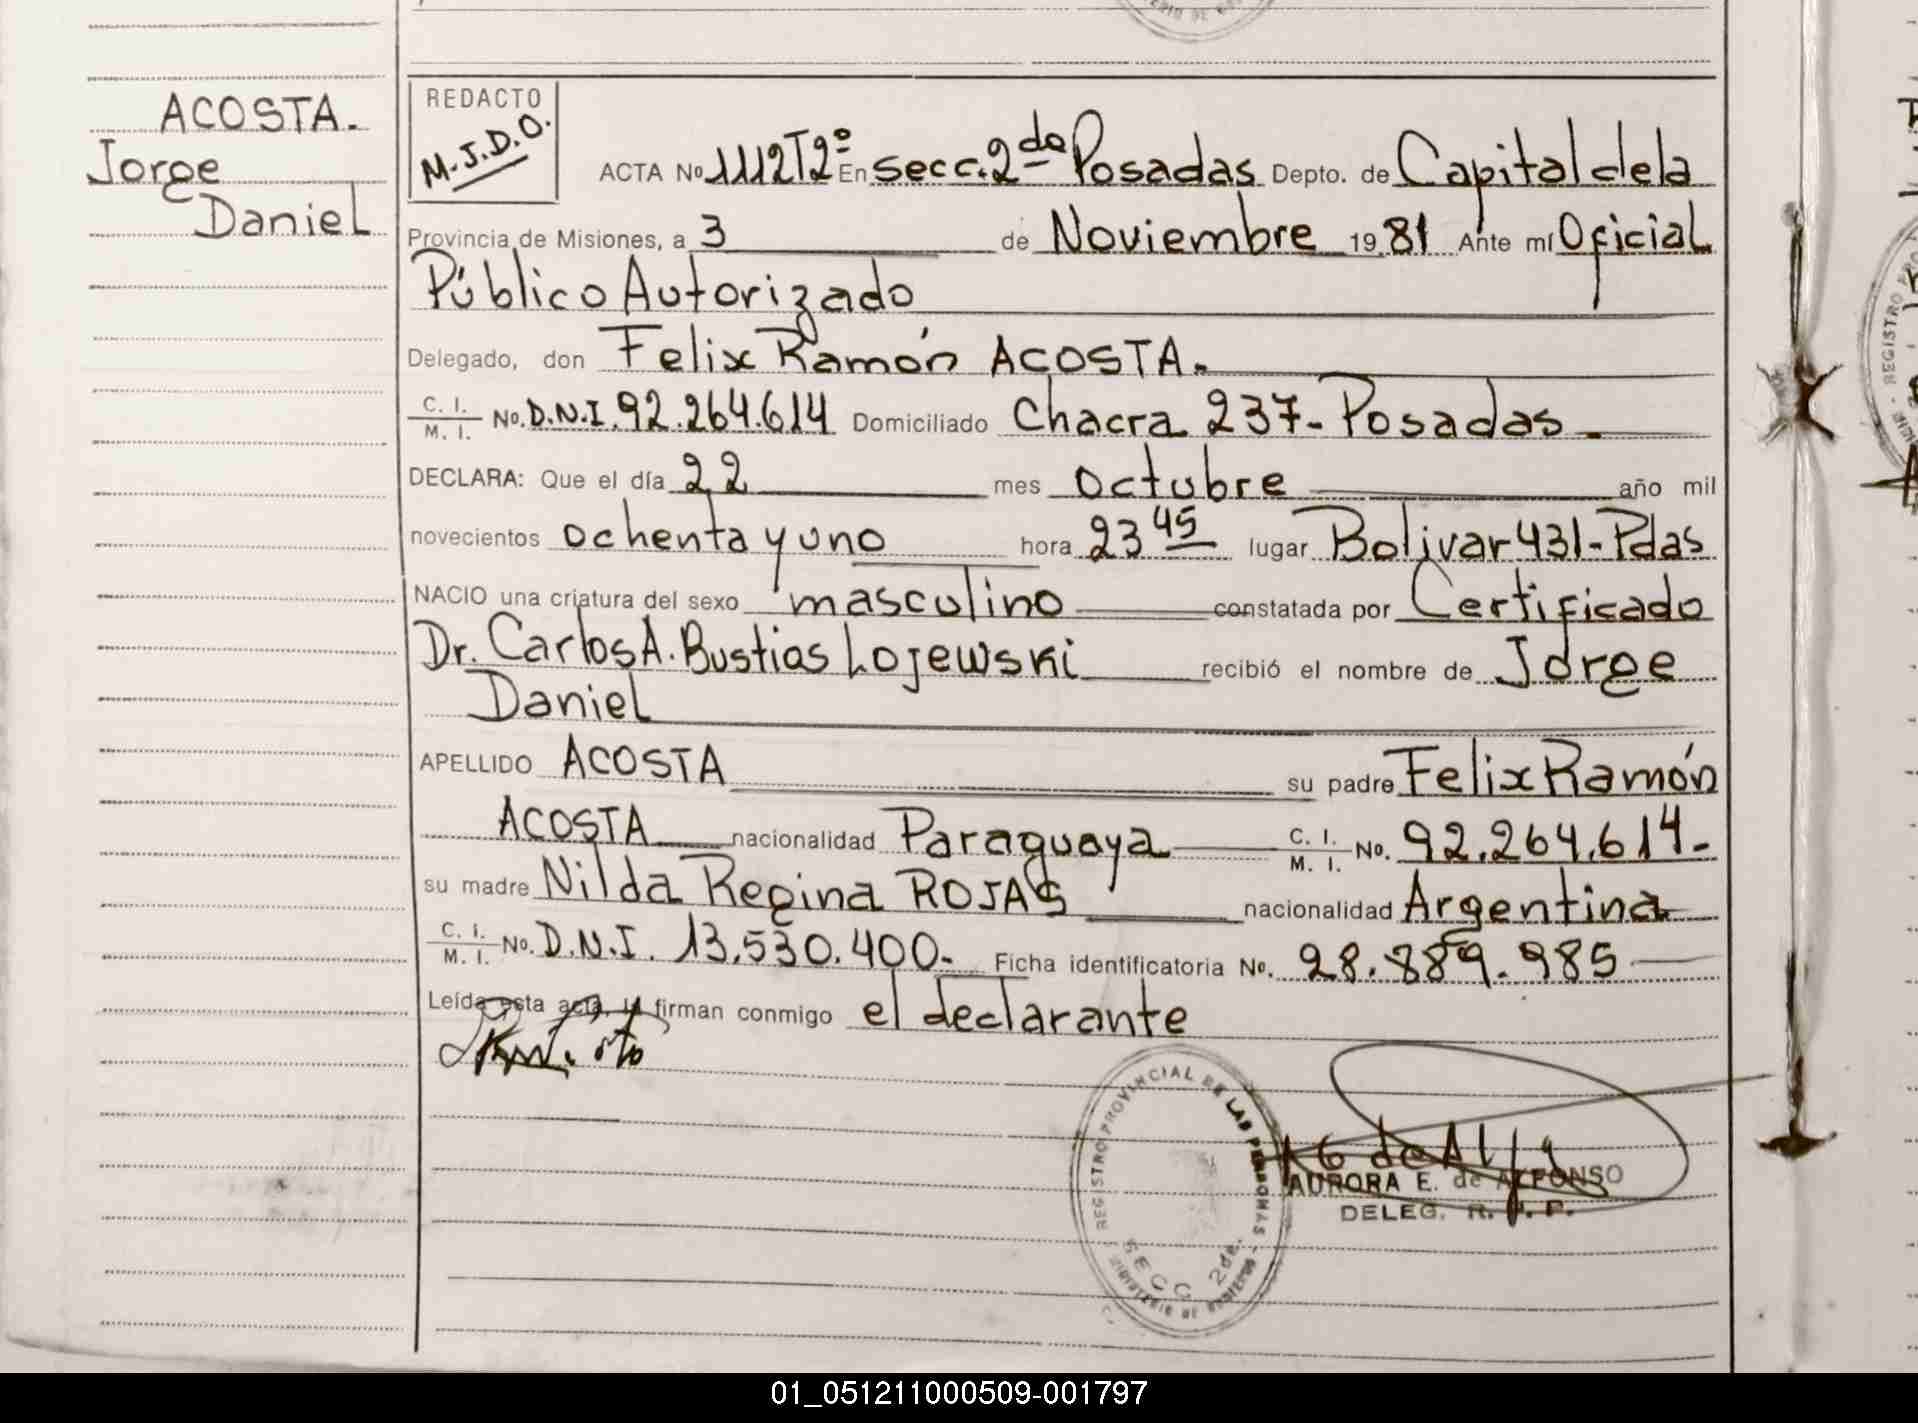 ACOSTA.
Jorge
Daniel
REDACTO
M.J.D.O.
ACTA No 1112T2º En secc. 2da Posadas Depto. de Capital de la
Provincia de Misiones, a 3 de Noviembre 1981 Ante mí Oficial
Público Autorizado
Delegado, don Felix Ramón ACOSTA.
C. I. / M. I. No. D.N.I. 92.264.614 Domiciliado Chacra 237-Posadas.
DECLARA: Que el día 22 mes octubre año mil
novecientos ochenta y uno hora 23 45 lugar Bolivar 431-Pdas
NACIO una criatura del sexo masculino constatada por Certificado
Dr. Carlos A. Bustios Lojewski recibió el nombre de Jorge
Daniel
APELLIDO ACOSTA su padre Felix Ramón
ACOSTA nacionalidad Paraguaya C. I. / M. I. No. 92.264.614.-
su madre Nilda Regina ROJAS nacionalidad Argentina
C. I. / M. I. No. D.N.I. 13.530.400.- Ficha identificatoria No. 28.889.985
Leída esta acta, la firman conmigo el declarante
REGISTRO PROVINCIAL DE LAS PERSONAS - MINISTERIO DE GOBIERNO
SECC 2da.
AURORA E. de ALFONSO
DELEG. R. P. P.
01_051211000509-001797